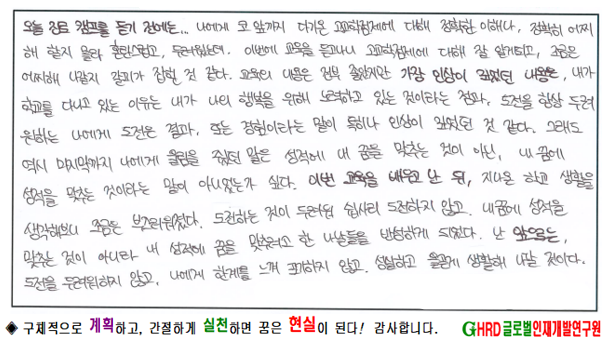 오늘 진로 캠프를 듣기 전에는... 나에게 코 앞까지 다가온 고교학점제에 대해 정확한 이해나, 정확히 어찌
해 할지 몰라 혼란스럽고, 두려웠는데. 이번에 교육을 듣고나니 고교학점제에 대해 잘 알게되고, 조금은
어찌해 나갈지 갈피가 잡힌 것 같다. 교육의 내용은 전부 좋았지만 가장 인상이 깊었던 내용은, 내가
학교를 다니고 있는 이유는 내가 나의 행복을 위해 노력하고 있는 것이라는 점과, 도전을 항상 두려
워하는 나에게 도전은 결과, 또는 경험이라는 말이 특히나 인상이 깊었던 것 같다. 그래도
역시 마지막까지 나에게 울림을 주었던 말은 성적에 내 꿈을 맞추는 것이 아닌, 내 꿈에
성적을 맞추는 것이라는 말이 아니었는가 싶다. 이번 교육을 배우고 난 뒤, 지나온 학교 생활을
생각해보니 조금은 부끄러워졌다. 도전하는 것이 두려워 쉽사리 도전하지 않고. 내꿈에 성적을
맞추는 것이 아니라 내 성적에 꿈을 맞추려고 한 나날들을 반성하게 되었다. 난 앞으로는,
도전을 두려워하지 않고, 나에게 한계를 느껴 포기하지 않고. 성실하고 올곧게 생활해 나갈 것이다.
◈ 구체적으로 계획하고, 간절하게 실천하면 꿈은 현실이 된다! 감사합니다. GHRD글로벌인재개발연구원